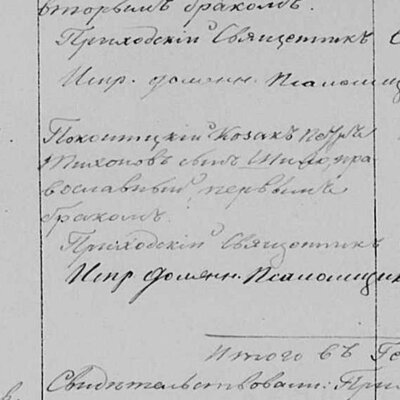 вторымъ бракомъ.
Приходскій Священникъ
Испр. должн. Псаломщ
Козакъ Петръ
Тихоновъ сынъ пра
вославный, первымъ
бракомъ.
Приходскій Священникъ
Испр. должн. Псаломщик
Итого въ Ге
Свидѣтельствовали: При